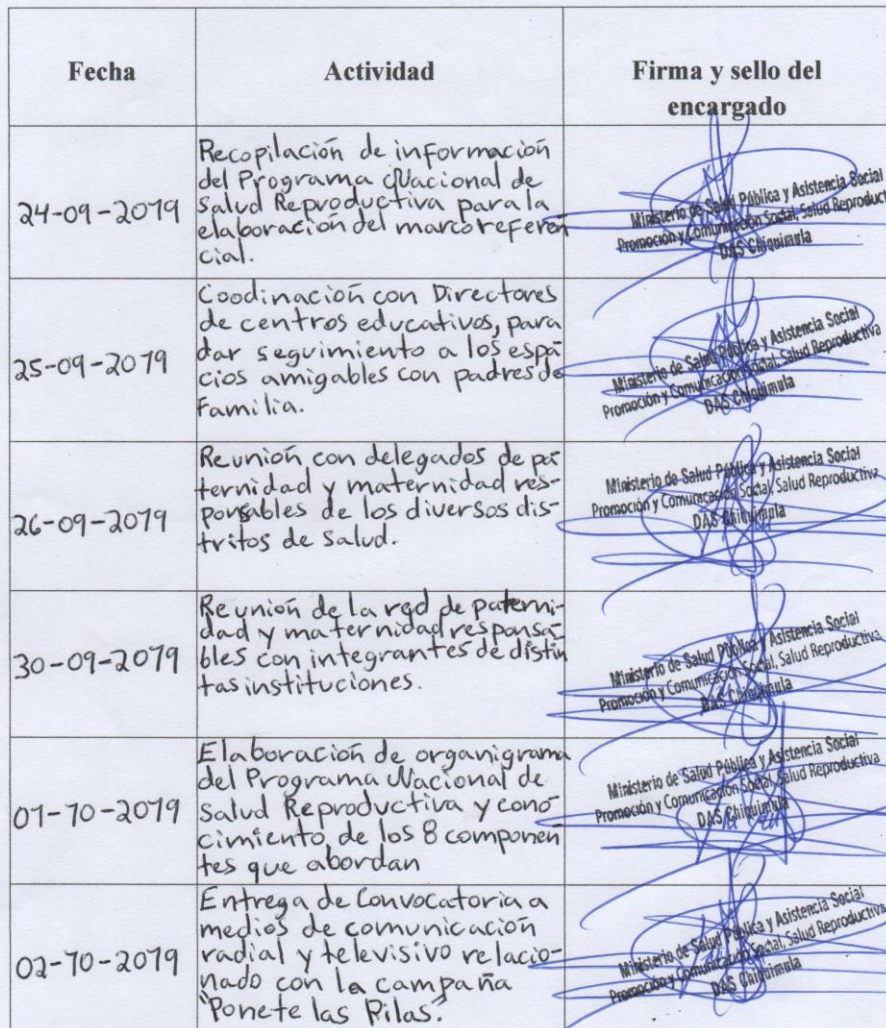 Fecha
Actividad
Firma y sello del
encargado
24-09-2019
Recopilación de información
del Programa Nacional de
Salud Reproductiva para la
elaboración del marco referen
cial.
Ministerio de Salud Pública y Asistencia Social
Promoción y Comunicación Social, Salud Reproduct
DAS Chiquimula
25-09-2019
Coodinación con Directores
de centros educativos, para
dar seguimiento a los espa
cios amigables con padres de
familia.
Ministerio de Salud Pública y Asistencia Social
Promoción y Comunicación Social, Salud Reproductiva
DAS Chiquimula
26-09-2019
Reunión con delegados de pa
ternidad y maternidad res-
ponsables de los diversos dis-
tritos de salud.
Ministerio de Salud Pública y Asistencia Social
Promoción y Comunicación Social, Salud Reproductiva
DAS Chiquimula
30-09-2019
Reunión de la red de paterni-
dad y maternidad responsa-
bles con integrantes de distin
tas instituciones.
Ministerio de Salud Pública y Asistencia Social
Promoción y Comunicación Social, Salud Reproductiva
DAS Chiquimula
01-10-2019
Elaboración de organigrama
del Programa Nacional de
Salud Reproductiva y cono
cimiento de los 8 componen
tes que abordan
Ministerio de Salud Pública y Asistencia Social
Promoción y Comunicación Social, Salud Reproductiva
DAS Chiquimula
02-10-2019
Entrega de Convocatoria a
medios de comunicación
radial y televisivo relacio-
nado con la campaña
"Ponete las Pilas".
Ministerio de Salud Pública y Asistencia Social
Promoción y Comunicación Social, Salud Reproductiva
DAS Chiquimula